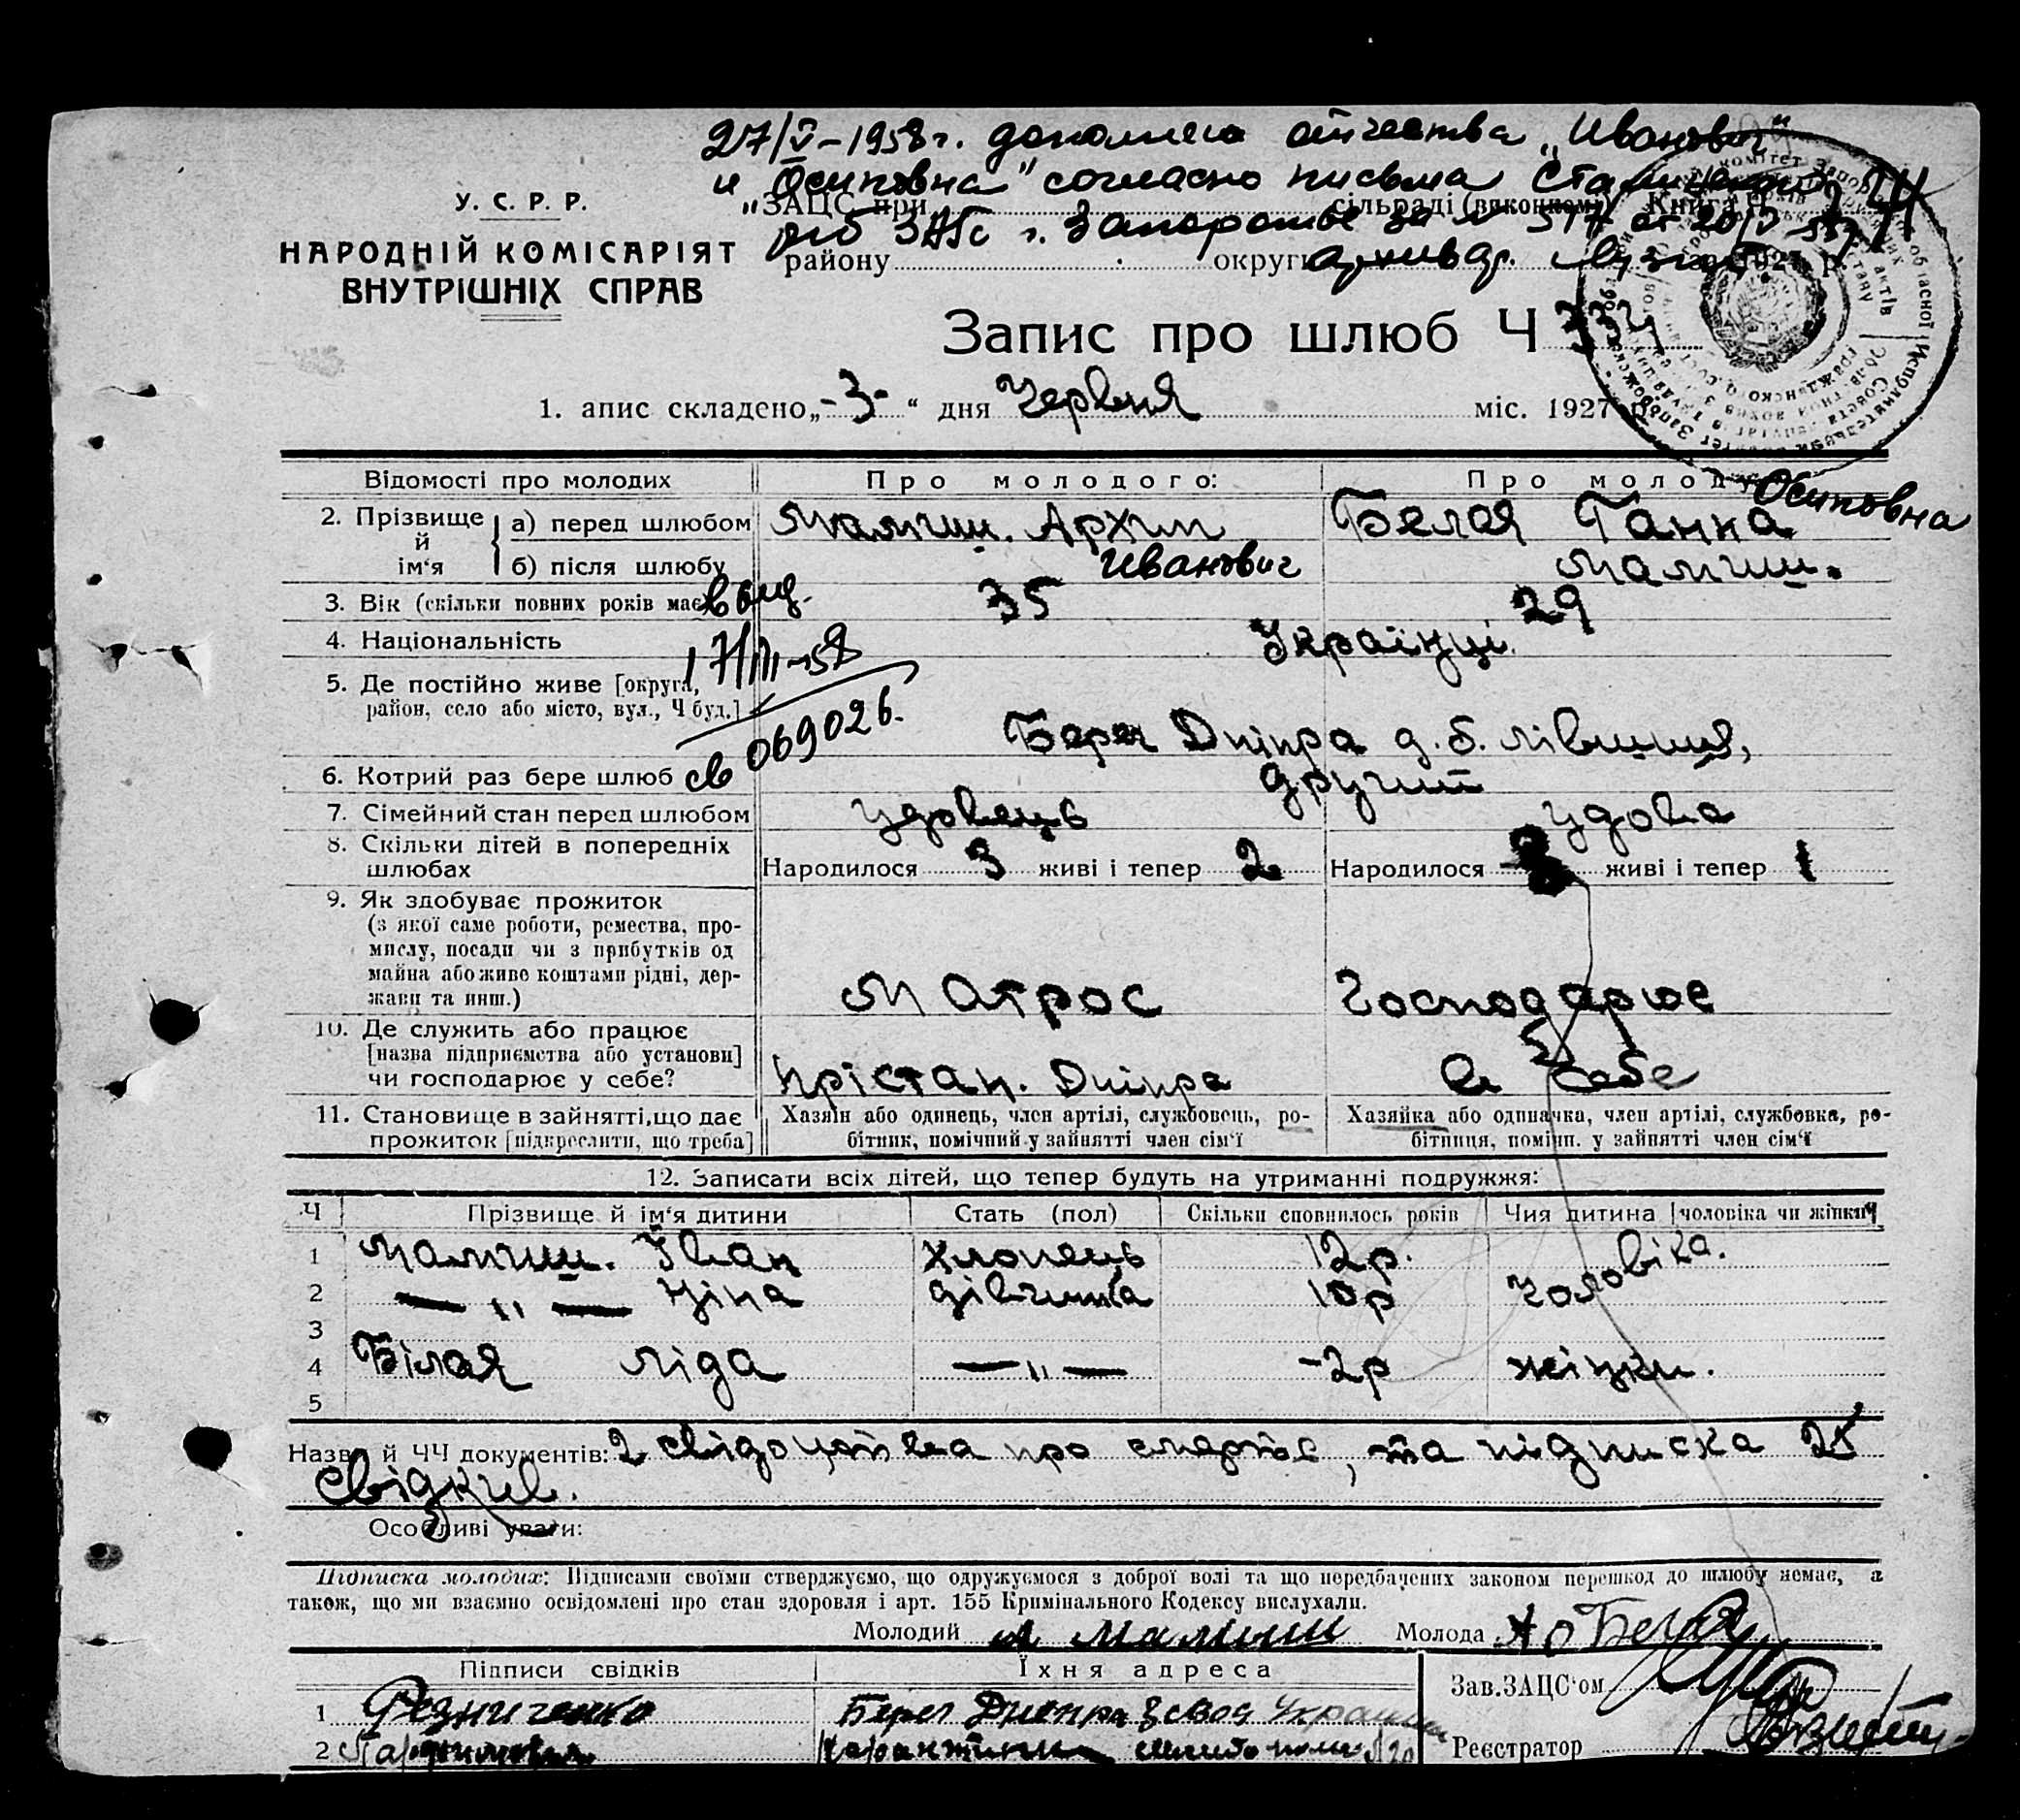 27/V-1958 г. дополнено отчества „Иванович"
и „Осиповна" согласно письма
ЗАГС г. Запорожье за № 517 от 20/V-58
У. С. Р. Р.
НАРОДНІЙ КОМІСАРІЯТ
ВНУТРІШНІХ СПРАВ
ЗАЦС при сільраді (виконкомі) Книга Ч
району округи 1927 р.
Запис про шлюб Ч 334
1. апис складено „-3-" дня Червня міс. 1927 р.
Відомості про молодих Про молодого: Про молоду
Осиповна
2. Прізвище й ім'я а) перед шлюбом Мамчич. Архип Белая Ганна
б) після шлюбу Иванович
3. Вік (скільки повних років має) 35 29
выд.
4. Національність Українці
17/III-58
5. Де постійно живе [округа,
район, село або місто, вул., Ч буд.]
св 069026.
Берег Дніпра д. б.
6. Котрий раз бере шлюб другий
7. Сімейний стан перед шлюбом удовець удова
8. Скільки дітей в попередніх
шлюбах Народилося 3 живі і тепер 2 Народилося живі і тепер 1
9. Як здобуває прожиток
(з якої саме роботи, ремества, про-
мислу, посади чи з прибутків од
майна або живе коштами рідні, дер-
жави та инш.) Матрос Господарює
10. Де служить або працює
[назва підприємства або установи]
чи господарює у себе? Прістан. Дніпра в себе
11. Становище в зайнятті, що дає
прожиток [підкреслити, що треба]
Хазяїн або одинець, член артілі, службовець, ро-
бітник, помічний у зайнятті член сім'ї
Хазяйка або одиначка, член артілі, службовка, ро-
бітниця, помічн. у зайнятті член сім'ї
12. Записати всіх дітей, що тепер будуть на утриманні подружжя:
Ч Прізвище й ім'я дитини Стать (пол) Скільки сповнилось років Чия дитина [чоловіка чи жінки]
1 Іван хлопець 12 р.
2 — " — Ніна дівчинка 10 р Чоловіка.
3
4 Білая Ліда — " — -2 р жінки.
5
Назва й ЧЧ документів: 2 свідоцтва про смерть, та підписка 2х
свідків.
Особливі уваги:
Підписка молодих: Підписами своїми стверджуємо, що одружуємося з доброї волі та що передбачених законом перешкод до шлюбу немає, а
також, що ми взаємно освідомлені про стан здоров'я і арт. 155 Кримінального Кодексу вислухали.
Молодий Молода Белая
Підписи свідків Їхня адреса Зав. ЗАЦС'ом
1 Резниченко Берег Днепра
2 Реєстратор